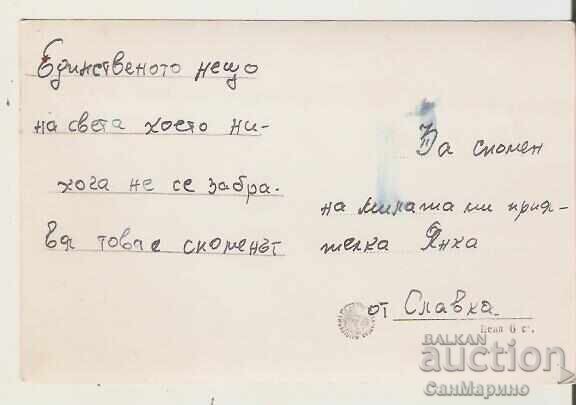 Единственото нещо
на света което ни-
кога не се забра-
вя това е споменът
За спомен
на милата ми прия-
телка Янка
от Славка.
Цена 6 ст.
BALKAN
auction
СанМарино